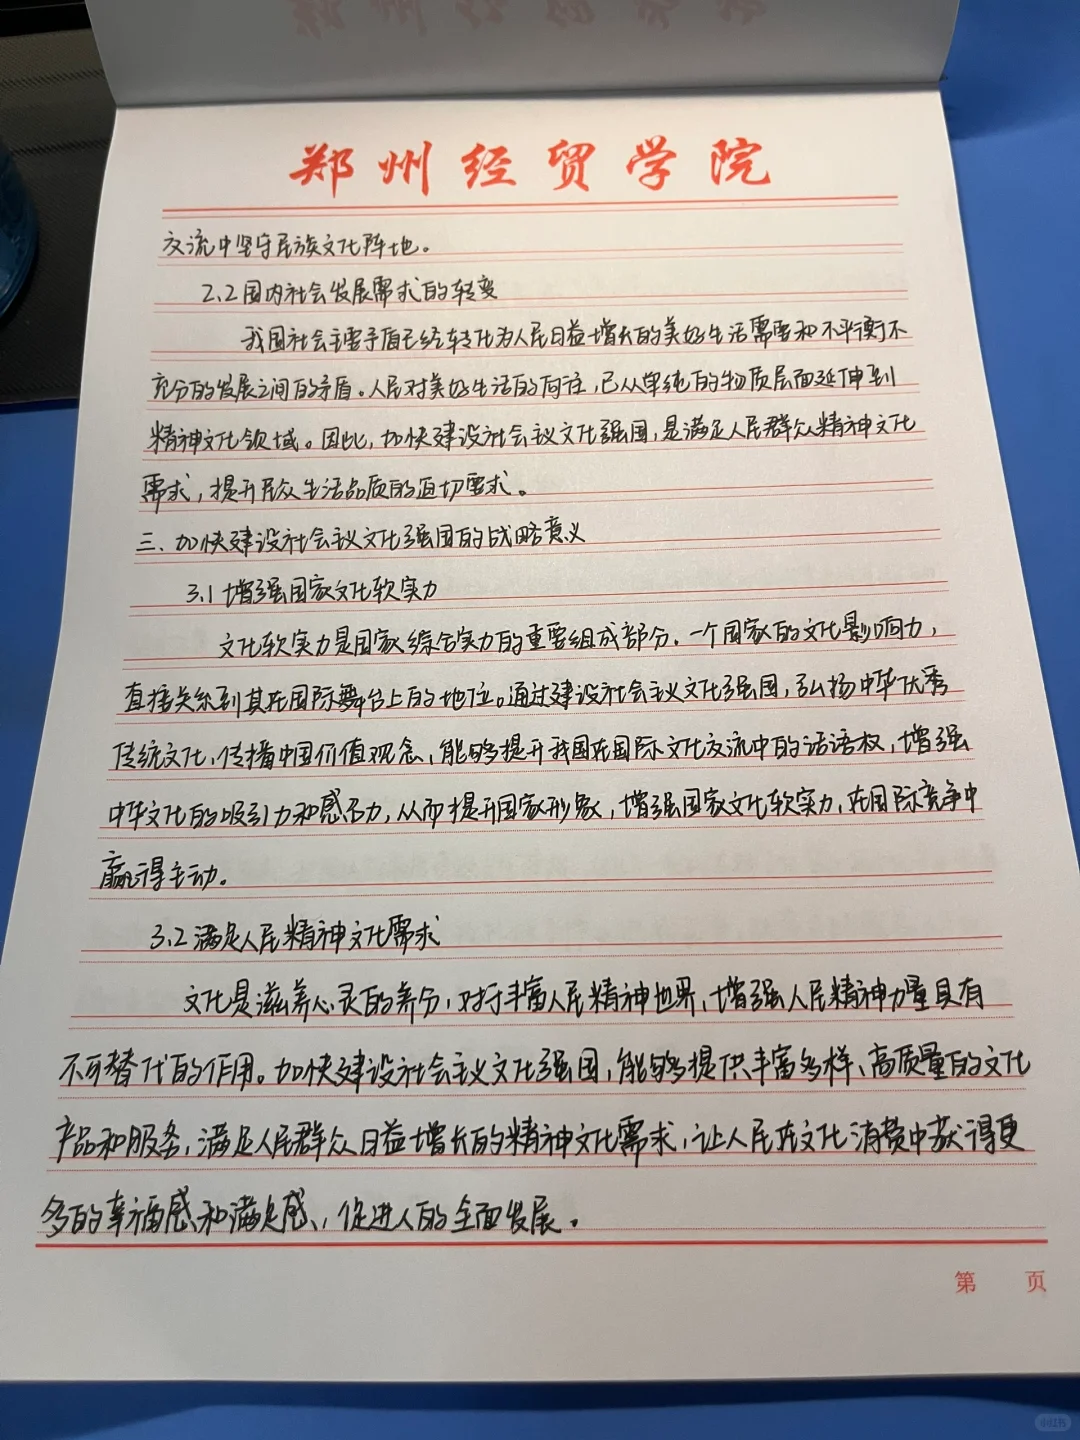 郑州经贸学院
交流中坚守民族文化阵地。
2.2国内社会发展需求的转变
我国社会主要矛盾已经转化为人民日益增长的美好生活需要和不平衡不
充分的发展之间的矛盾。人民对美好生活的向往,已从单纯的物质层面延伸到
精神文化领域。因此,加快建设社会主义文化强国,是满足人民群众精神文化
需求,提升民众生活品质的迫切要求。
三、加快建设社会主义文化强国的战略意义
3.1增强国家文化软实力
文化软实力是国家综合实力的重要组成部分,一个国家的文化影响力,
直接关系到其在国际舞台上的地位。通过建设社会主义文化强国,弘扬中华优秀
传统文化,传播中国价值观念,能够提升我国在国际文化交流中的话语权,增强
中华文化的吸引力和感召力,从而提升国家形象,增强国家文化软实力,在国际竞争中
赢得主动。
3.2满足人民精神文化需求
文化是滋养心灵的养分,对于丰富人民精神世界、增强人民精神力量具有
不可替代的作用。加快建设社会主义文化强国,能够提供丰富多样、高质量的文化
产品和服务,满足人民群众日益增长的精神文化需求,让人民在文化消费中获得更
多的幸福感和满足感,促进人的全面发展。
第 页
小红书